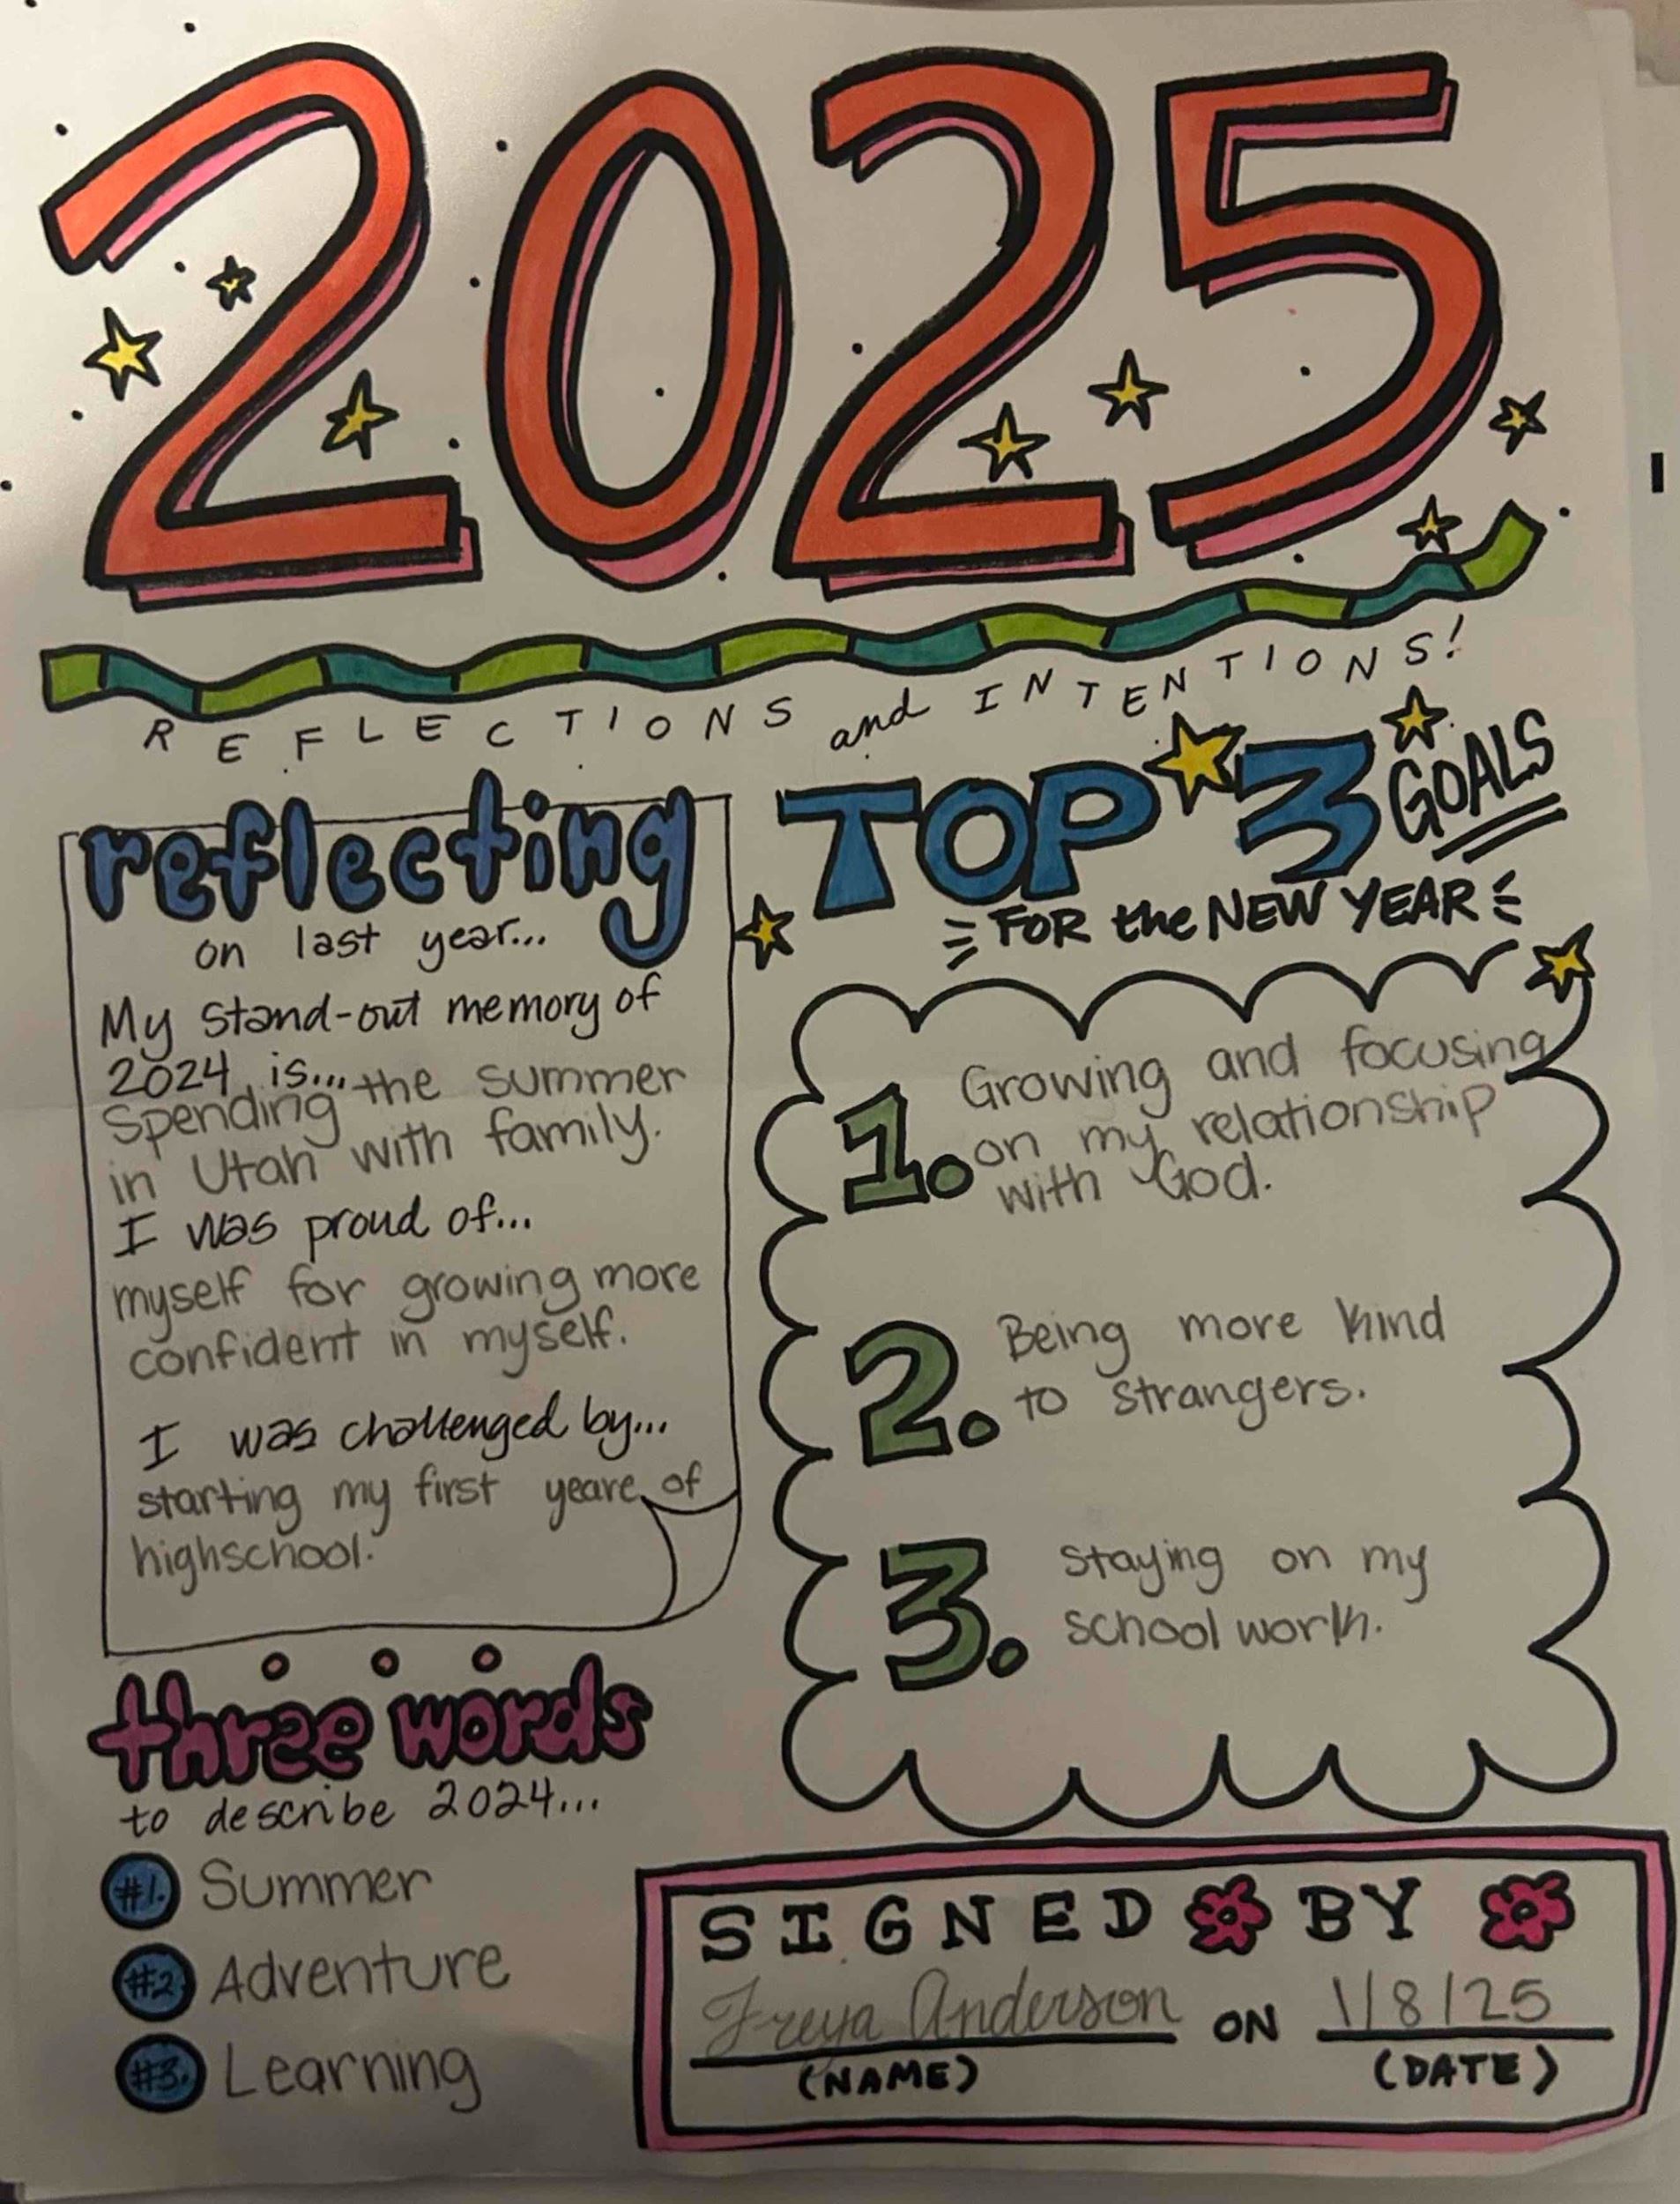 2025
REFLECTIONS and INTENTIONS!
reflecting
on last year...
My stand-out memory of
2024 is... the summer
Spending
in Utah with family.
I was proud of...
myself for growing more
confident in myself.
I was challenged by...
starting my first yeare of
highschool.
three words
to describe 2024...
#1. Summer
#2. Adventure
#3. Learning
TOP 3 GOALS
FOR the NEW YEAR
1. Growing and focusing
on my relationship
with God.
2. Being more kind
to strangers.
3. Staying on my
school work.
SIGNED BY
Freya Anderson ON 1/8/25
(NAME) (DATE)